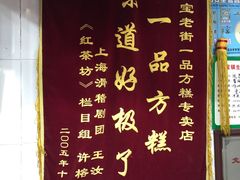 宝老街一品方糕专卖店
一品方糕
味道好极了
上海滑稽剧团 王汝
《红茶坊》栏目组 许榕
二00五年十